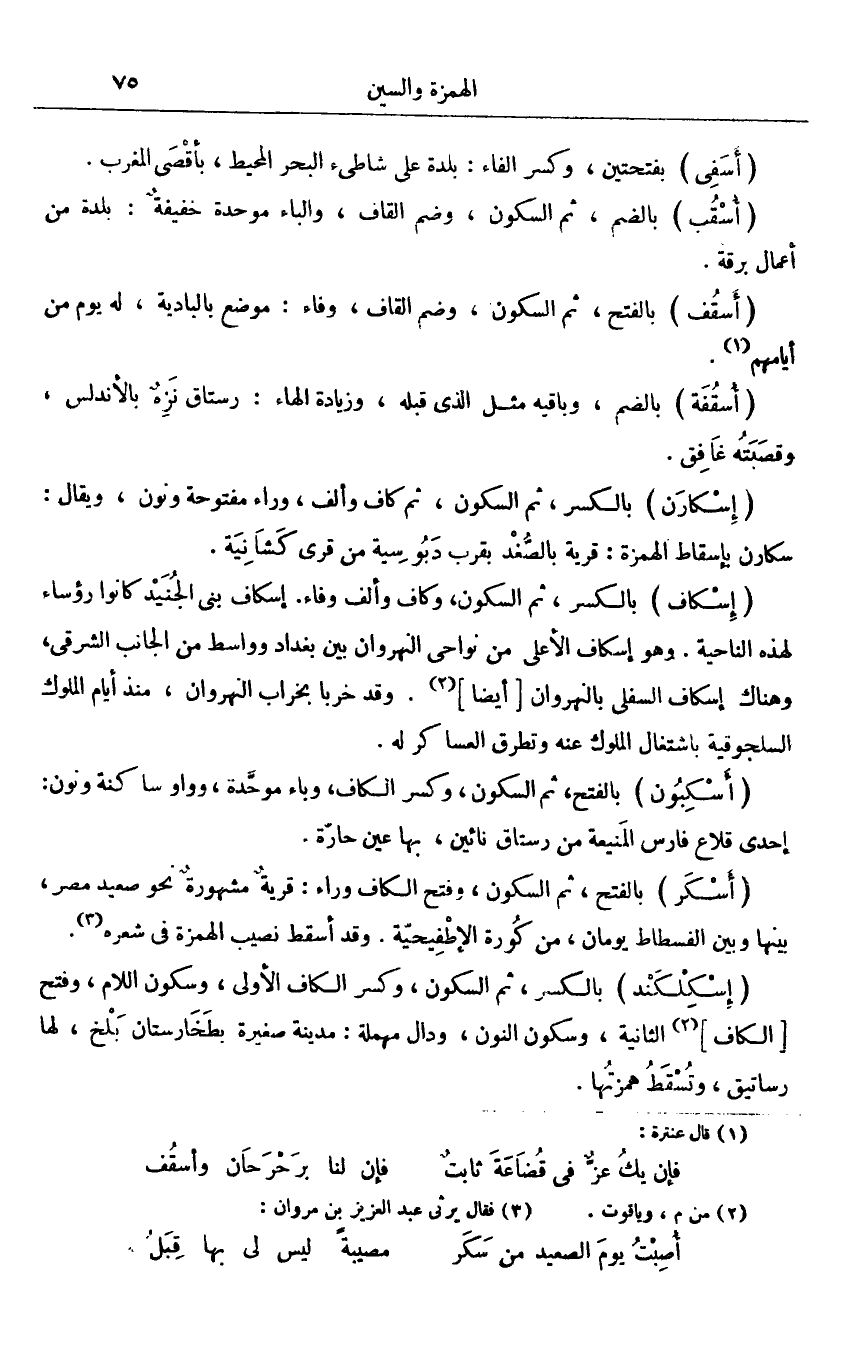 الهمزة والسين ٧٥
(أَسَفِى) بفتحتين ، وكسر الفاء : بلدة على شاطىء البحر المحيط ، بأَقْصَى المغرب .
(أُسْقُب) بالضم ، ثم السكون ، وضم القاف ، والباء موحدة خفيفةٌ : بلدة من
أعمال برقة .
(أَسقُف) بالفتح ، ثم السكون ، وضم القاف ، وفاء : موضع بالبادية ، له يوم من
أيامهم(١) .
(أُسقُفَة) بالضم ، وباقيه مثل الذى قبله ، وزيادة الهاء : رستاق نَزِهٌ بالأندلس ،
وقصَبَتُه غَافِق .
(إِسْكارَن) بالكسر ، ثم السكون ، ثم كاف وألف ، وراء مفتوحة ونون ، ويقال :
سكارن بإسقاط الهمزة : قرية بالصُّغْد بقرب دَبُوسِية من قرى كَشَانِيَة .
(إِسْكاف) بالكسر ، ثم السكون، وكاف وألف وفاء. إسكاف بنى الجُنَيْد كانوا رؤساء
لهذه الناحية . وهو إسكاف الأعلى من نواحى النهروان بين بغداد وواسط من الجانب الشرقى،
وهناك إسكاف السفلى بالنهروان [ أيضا ](٢) . وقد خربا بخراب النهروان ، منذ أيام الملوك
السلجوقية باشتغال الملوك عنه وتطرق العساكر له .
(أَسْكِبُون) بالفتح، ثم السكون ، وكسر الكاف، وباء موحَّدة ، وواو ساكنة ونون:
إحدى قلاع فارس المَنيعة من رستاق نائين ، بها عين حارّة .
(أَسْكَر) بالفتح ، ثم السكون ، وفتح الكاف وراء : قريةٌ مشهورةٌ نحو صعيد مصر ،
بينها وبين الفسطاط يومان ، من كُورة الإطْفِيحيّة . وقد أسقط نصيب الهمزة فى شعره(٣).
(إِسْكِلْكَنْد) بالكسر ، ثم السكون ، وكسر الكاف الأولى ، وسكون اللام ، وفتح
[ الكاف ](٢) الثانية ، وسكون النون ، ودال مهملة : مدينة صغيرة بطَخَارستان بَلْخ ، لها
رساتيق ، وتُسْقَطُ همزتُها .
(١) قال عنترة :
فإن يكُ عزٌّ فى قُضَاعَةَ ثابتٌ فإن لنا برَحْرَحَان وأسقُف
(٢) من م ، وياقوت . (٣) فقال يرثى عبد العزيز بن مروان :
أُصِبْتُ يومَ الصعيد من سَكَر مصيبةً ليس لى بها قِبَلُ .